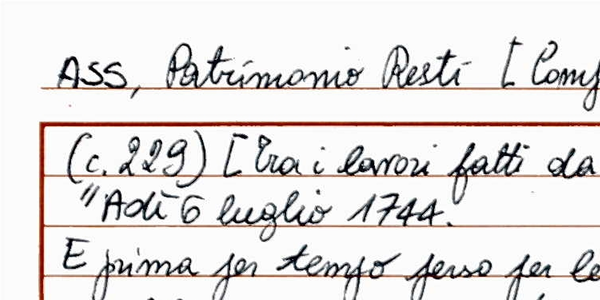 ASS, Patrimonio Resti [Comp
(c. 229) [Tra i lavori fatti da
"Adì 6 luglio 1744.
E prima per tempo perso per le